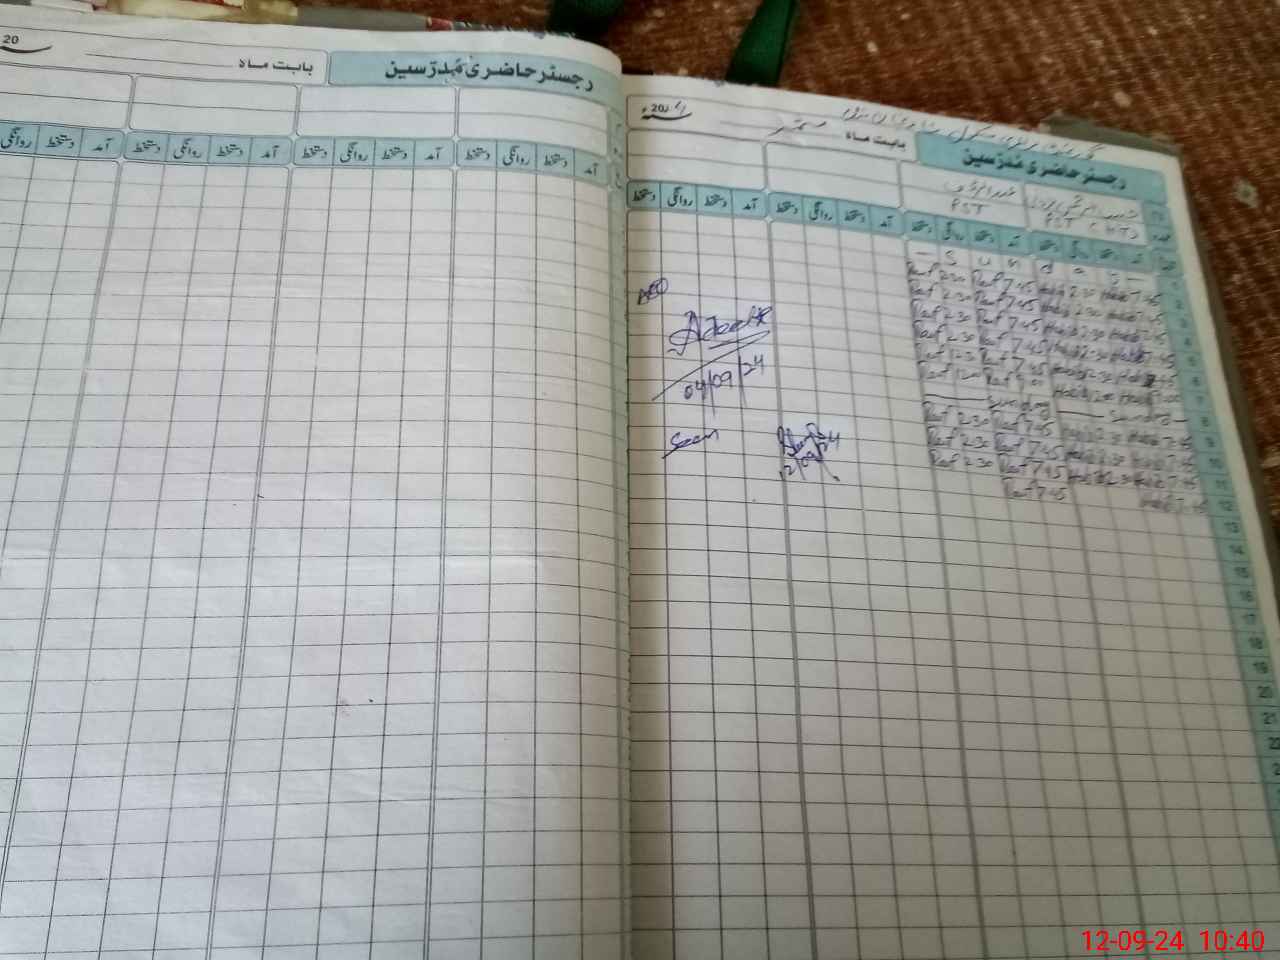 20
بابت ماہ
رجسٹر حاضری مُدرّسین
آمد دستخط روانگی دستخط آمد دستخط روانگی دستخط آمد دستخط روانگی دستخط آمد دستخط روانگی
گورنمنٹ پرائمری سکول
رجسٹر حاضری مُدرّسین
بابت ماہ ستمبر
2024ء
PST (HT)
PST
آمد دستخط روانگی دستخط آمد دستخط روانگی دستخط آمد دستخط روانگی دستخط
1 - S u n d a y -
2 Rauf 2:30 Rauf 7:45 Habib 2:30 Habib 7:45
3 Rauf 2:30 Rauf 7:45 Habib 2:30 Habib 7:45
4 Rauf 2:30 Rauf 7:45 Habib 2:30 Habib 7:45
5 Rauf 2:30 Rauf 7:45 Habib 2:30 Habib 7:45
6 Rauf 7:45 Habib
7 Rauf 1200 Rauf Habib 1200 Habib
8 Sunday Sunday
9 Rauf 2:30 Rauf 7:45 Habib 2:30 Habib 7:45
10 Rauf 2:30 Rauf 7:45 Habib 2:30 Habib 7:45
11 Rauf 2:30 Rauf 7:45 Habib 2:30 Habib 7:45
12 Rauf 7:45 Habib 7:45
13
14
15
16
17
18
19
20
21
22
04/09/24
Seen
12/09/24
12-09-24 10:40